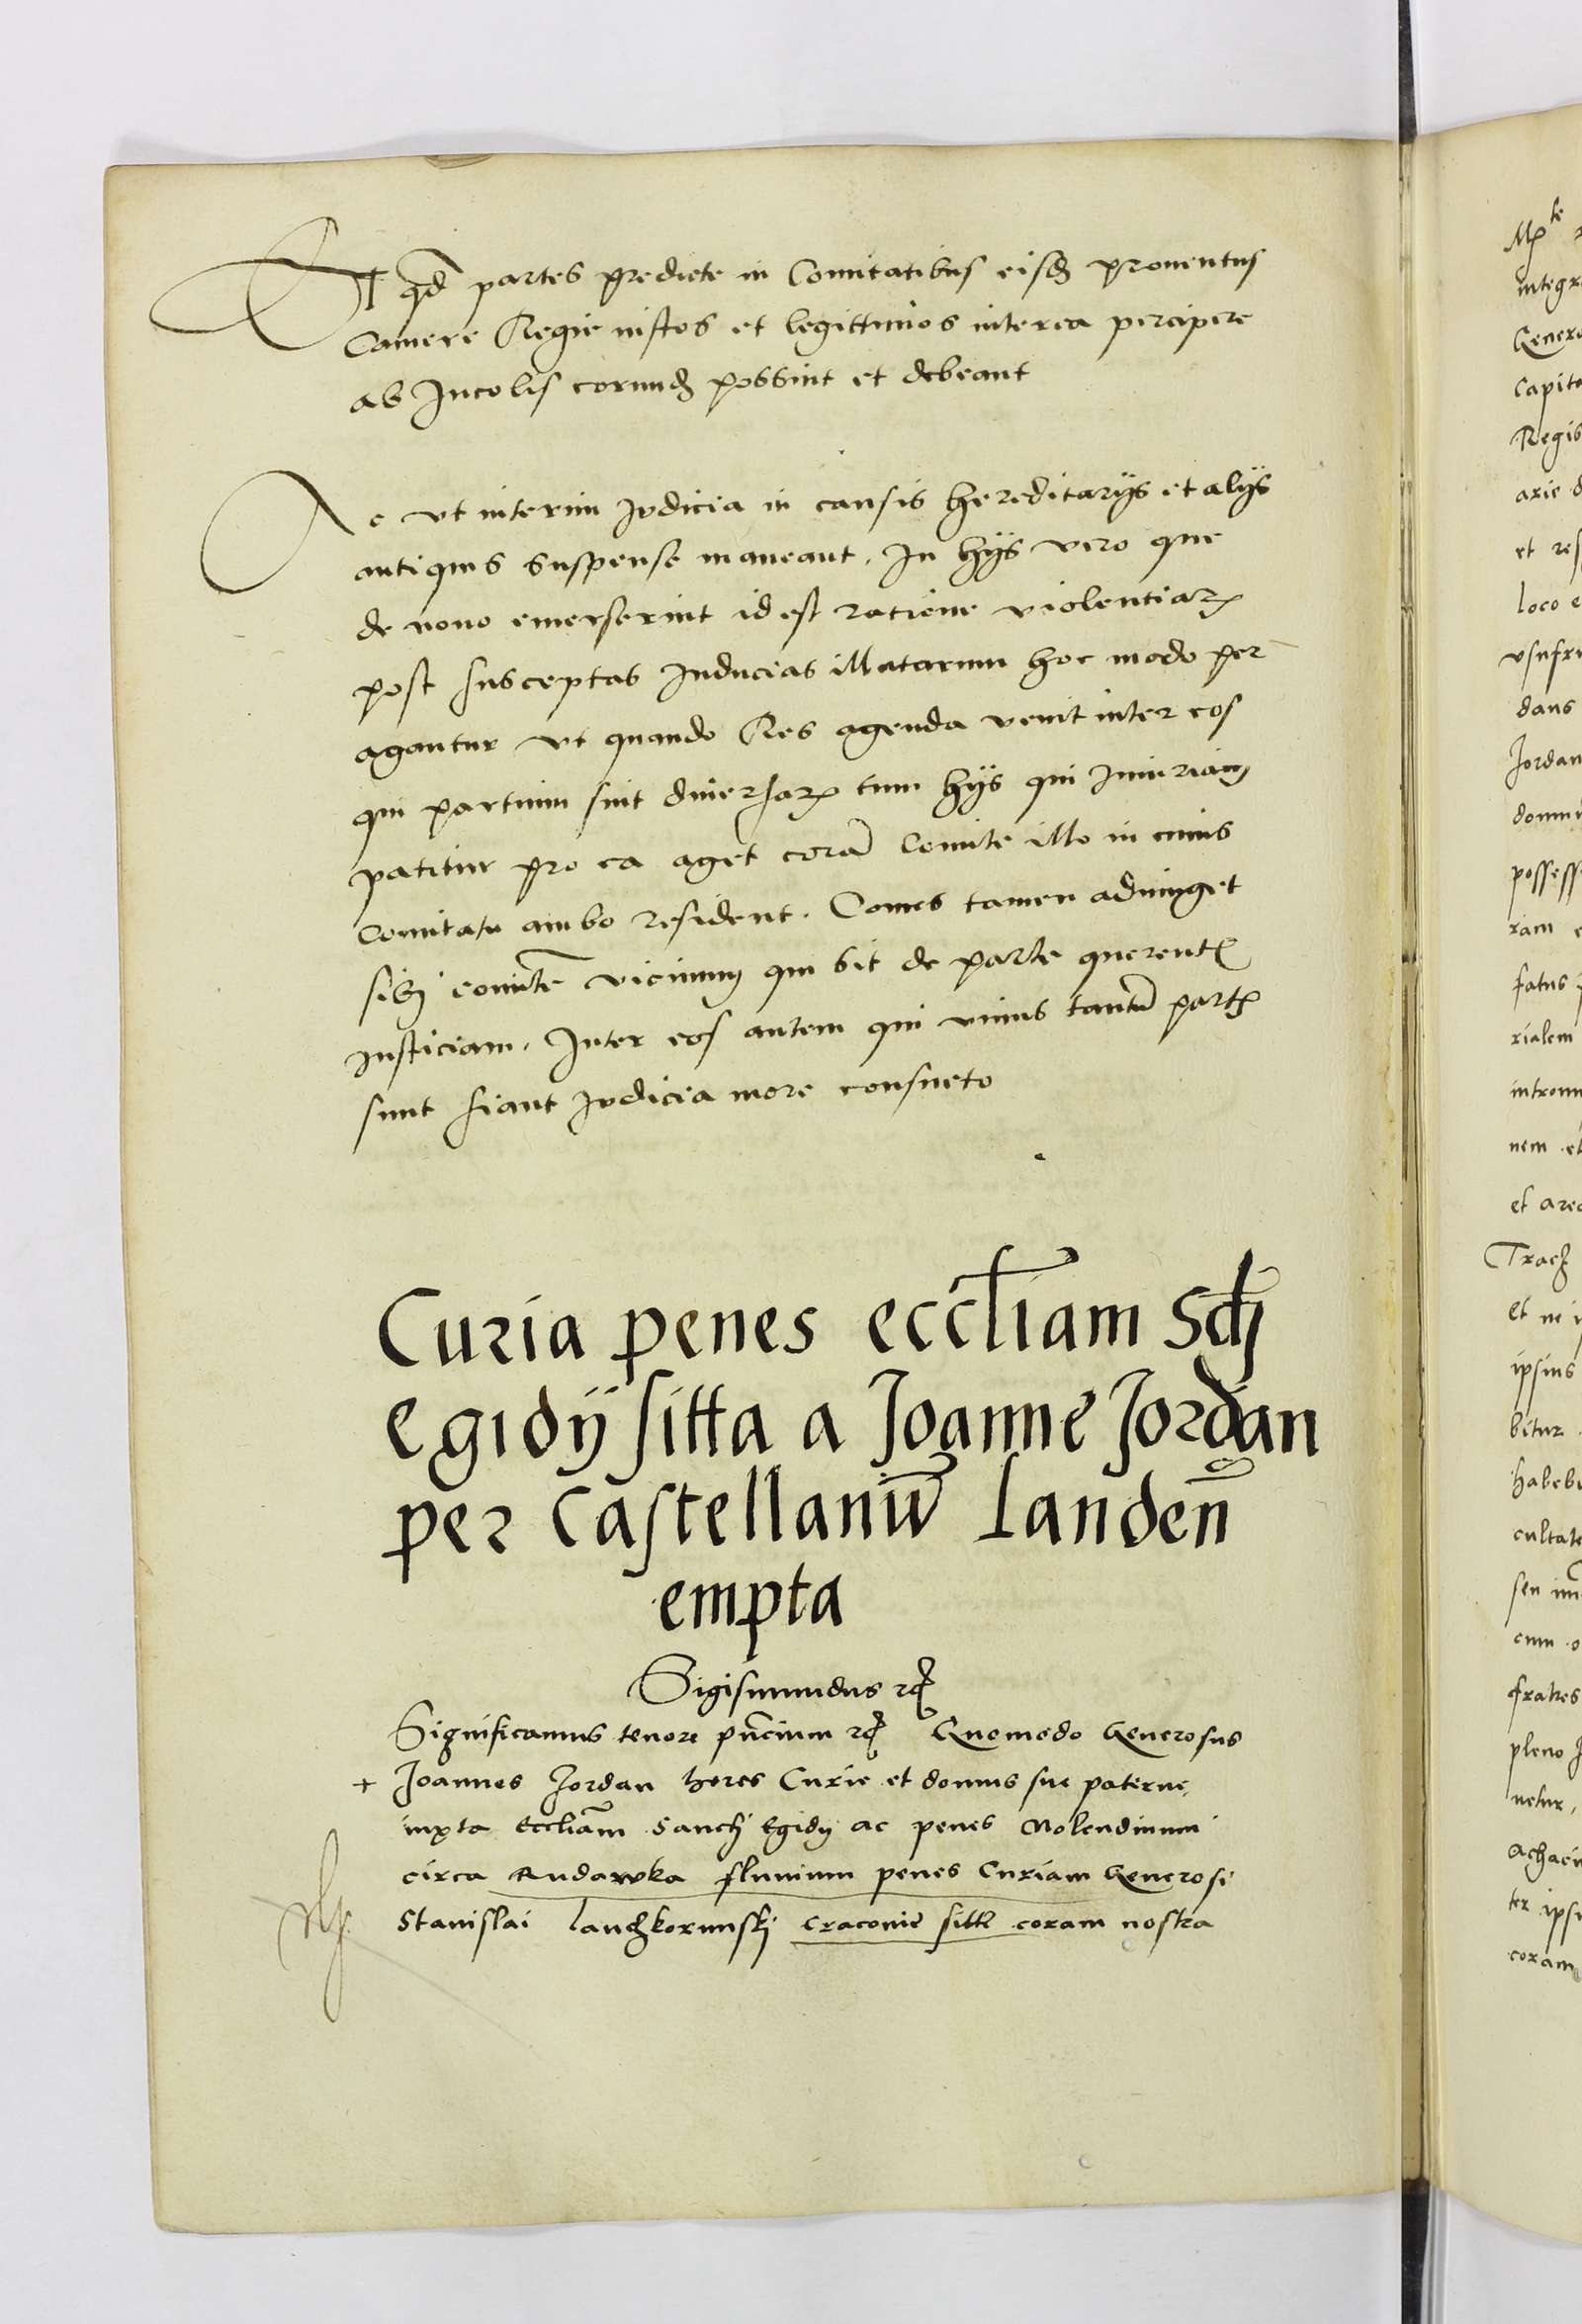 Et qd partes predicte in Comitatibus eisd prouentus
Camere Regie iustos et legittimos interea percipere
ab Incolis eorund possint et debeant
Ac vt interim Iudicia in causis hereditarijs et alijs
antiquis suspense maneant. In hijs vero que
de nouo emerserint id est ratione violentiar
post susceptas Inducias illatarum hoc modo per
agantur vt quando Res agenda venit inter eos
qui partium sint diuersar tum hijs qui Iniuriam
patitur pro ea aget cora Comite illo in cuius
Comitatu ambo resident. Comes tamen adiunget
sibi comite vicinum qui sit de parte querent
iusticiam. Inter eos autem qui vnius tantu part
sunt fiant Iudicia more consueto
Curia penes eccliam Scti
Egidij sitta a Joanne Jordan
per Castellanu Landen
empta
Sigismundus rc
Significamus tenore pncium rc Quomodo Generosus
+ Joannes Jordan heres Curie et domus sue paterne
iuxta Eccliam Sancti Egidij ac penes Molendinum
circa Rudawka fluuium penes Curiam Generosi
Stanislai Lanczkorunski Craconie sitte coram nostra
Mte
integr
Genero
Capit
Regis
arie d
et res
loco e
vsufru
dans
Jordan
domu
possess
ram e
fatus
rialem
introm
nem et
et are
Tracz
et in i
ipsius
bitur
habeb
cultat
seu
cum o
fratres
pleno
netur,
Achaci
ter ips
coram